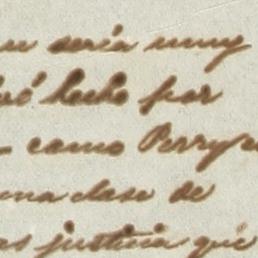 sería muy
hecho por
como Perry
una clase de
justicia que